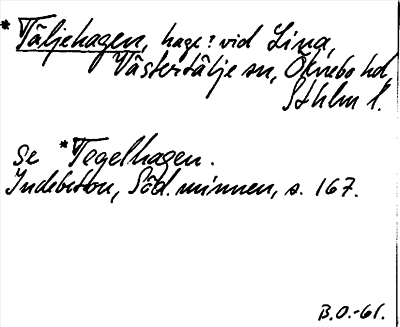 *Täljehagen, hage? vid Lina,
Västertälje sn, Öknebo hd,
Sthlm l.
se *Tegelhagen.
Indebetou, Söd. minnen, s. 167.
B.O.-61.